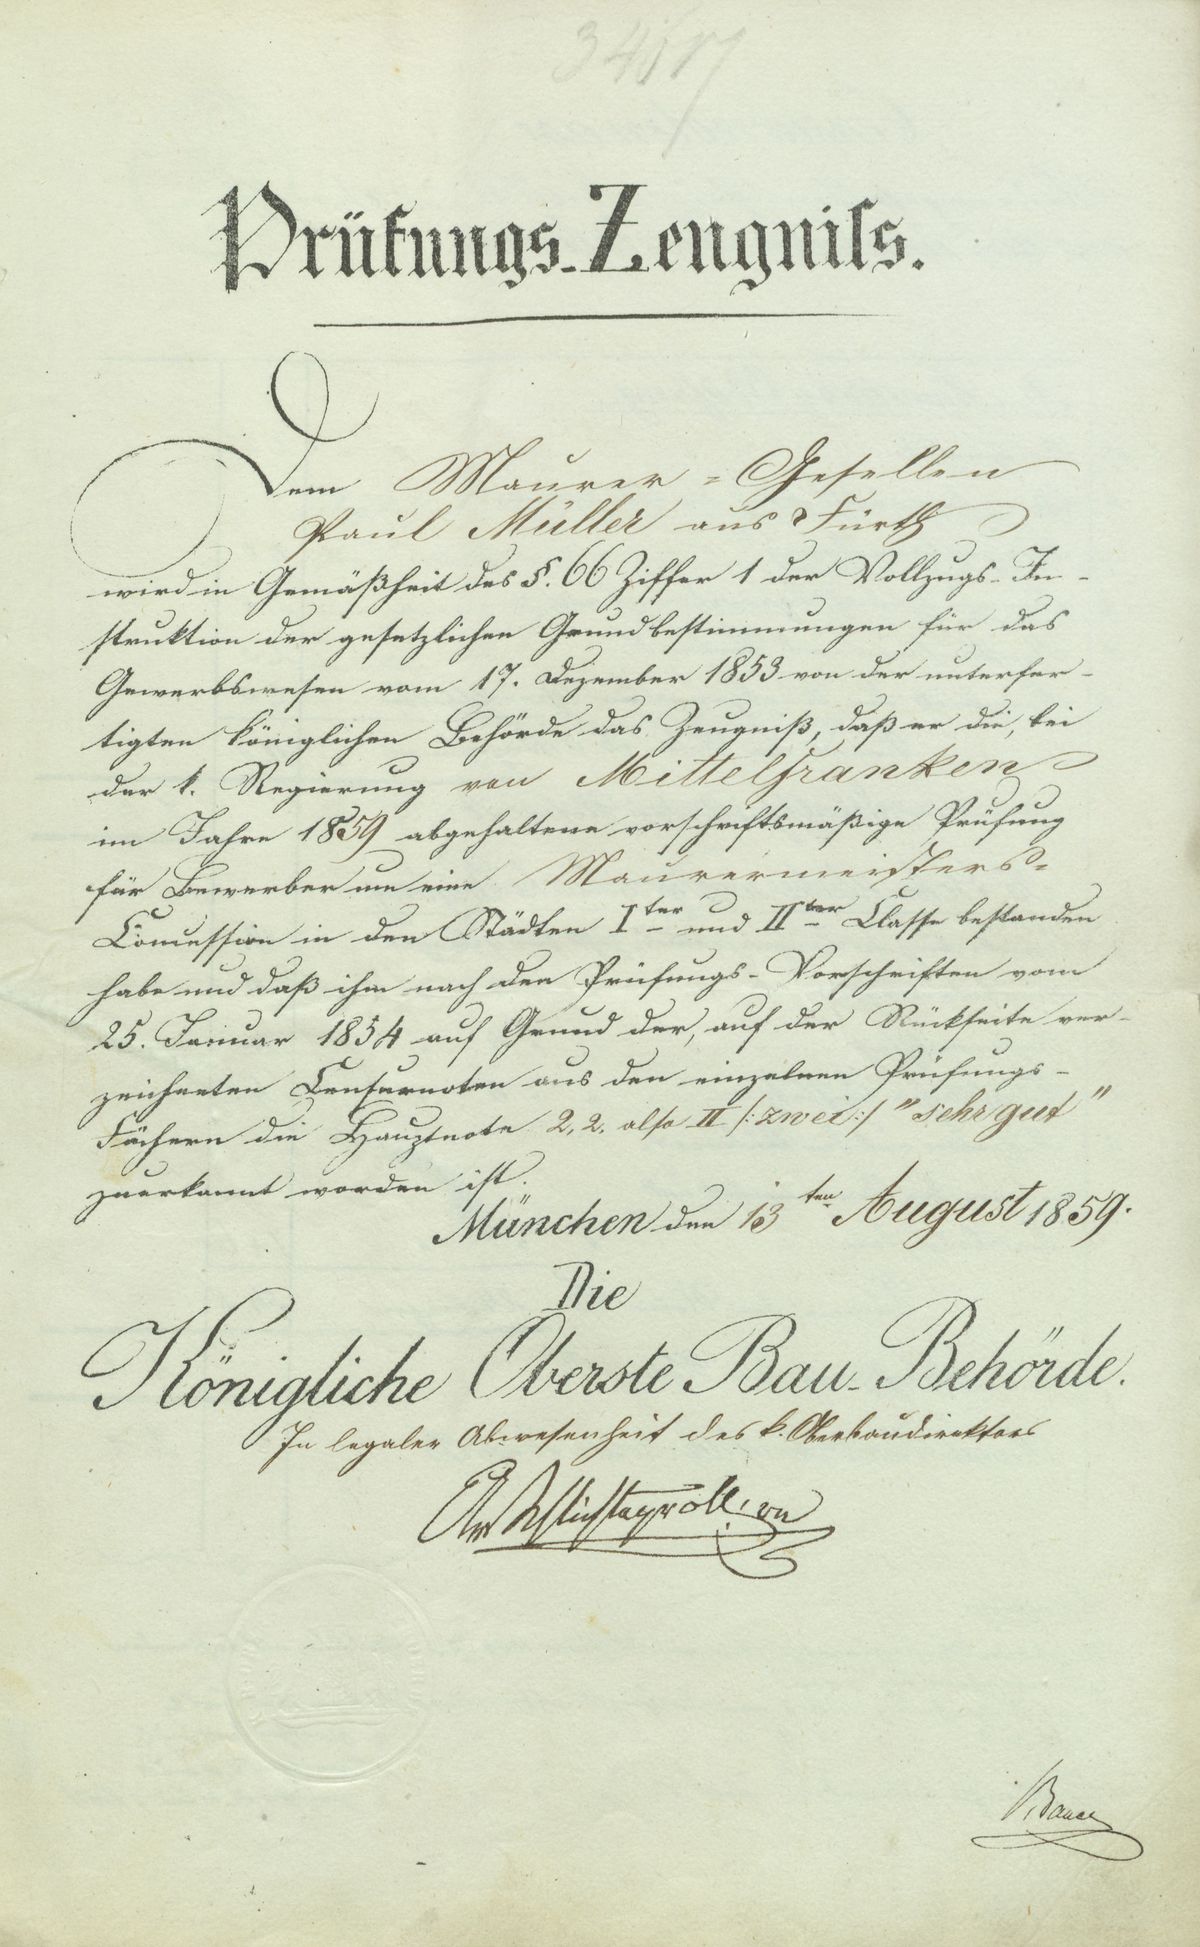 Prüfungs-Zeugniss.
Dem Maurer-Gesellen
Paul Müller aus Fürth
wird in Gemäßheit des §. 66 Ziffer 1 der Vollzugs-In-
struktion der gesetzlichen Grundbestimmungen für das
Gewerbswesen vom 17. Dezember 1853 von der unterfer-
tigten königlichen Behörde das Zeugniß, daß er die, bei
der k. Regierung von Mittelfranken
im Jahre 1859 abgehaltene vorschriftsmäßige Prüfung
für Bewerber um eine Maurermeisters-
Concession in den Städten Iter und IIter Classe bestanden
habe und daß ihm nach den Prüfungs-Vorschriften vom
25. Januar 1854 auf Grund der, auf der Rückseite ver-
zeichneten Censurnoten aus den einzelnen Prüfungs-
Fächern die Hauptnote 2,2. also II /:zwei:/ "sehr gut"
zuerkannt worden ist.
München den 13ten August 1859.
Die
Königliche Oberste Bau-Behörde.
In legaler Abwesenheit des k. Oberbaudirektors
Schlichtegroll